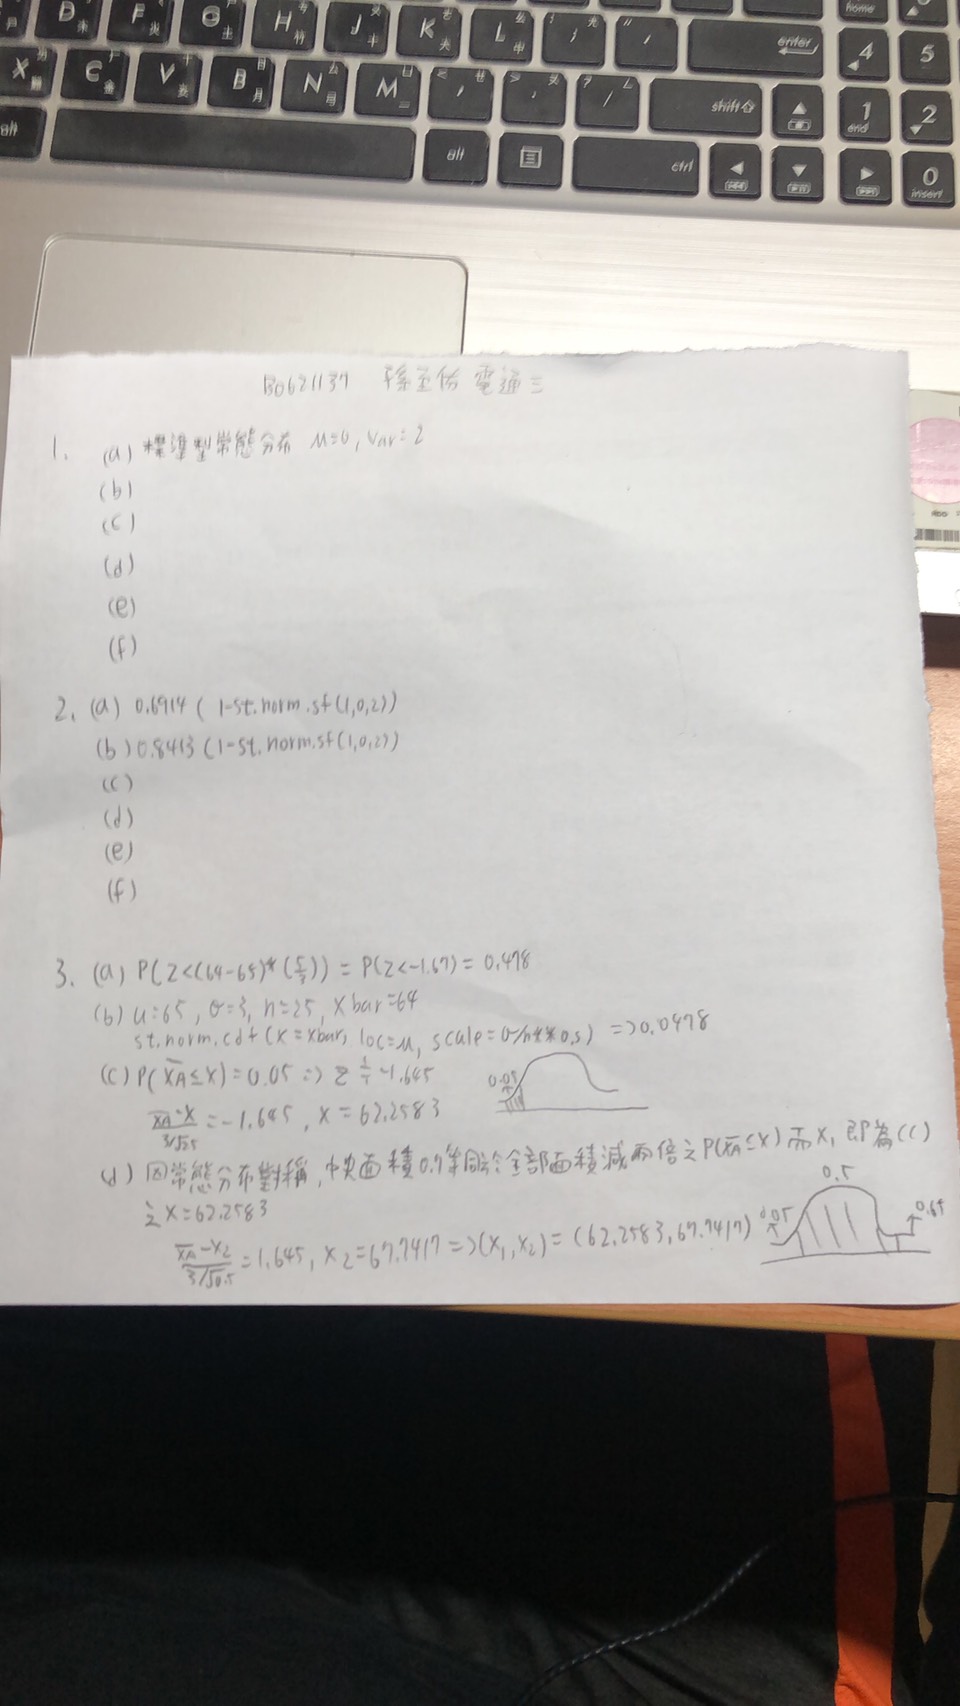 D F G H J K L ; , enter home 4 5
X C V B N M , . / shift 1 end 2
alt alt ctrl 0 insert
B0621137 電通三
1. (a) 標準型常態分布 M=0, Var=2
(b)
(c)
(d)
(e)
(f)
2. (a) 0.6914 ( 1-st.norm.sf(1,0,2))
(b) 0.8413 (1-st.norm.sf(1,0,2))
(c)
(d)
(e)
(f)
3. (a) P(Z<(64-65)*(5/3)) = P(Z<-1.67) = 0.478
(b) u=65, σ=3, n=25, X bar=64
st.norm.cdf (x=xbar, loc=u, scale=σ/n**0.5) => 0.0478
(c) P(X̄A≤X)=0.05 => Z ≒ -1.645 0.05
X̄A-X/3/√25 = -1.645, X = 62.2583
(d) 因常態分布對稱,中央面積0.9等同於全部面積減兩倍之P(X̄A≤X)而X1即為(c)
之X=62.2583
X̄A-X2/3/√0.5 = 1.645, X2=67.7417 => (X1,X2) = (62.2583,67.7417) 0.05 0.5 0.65